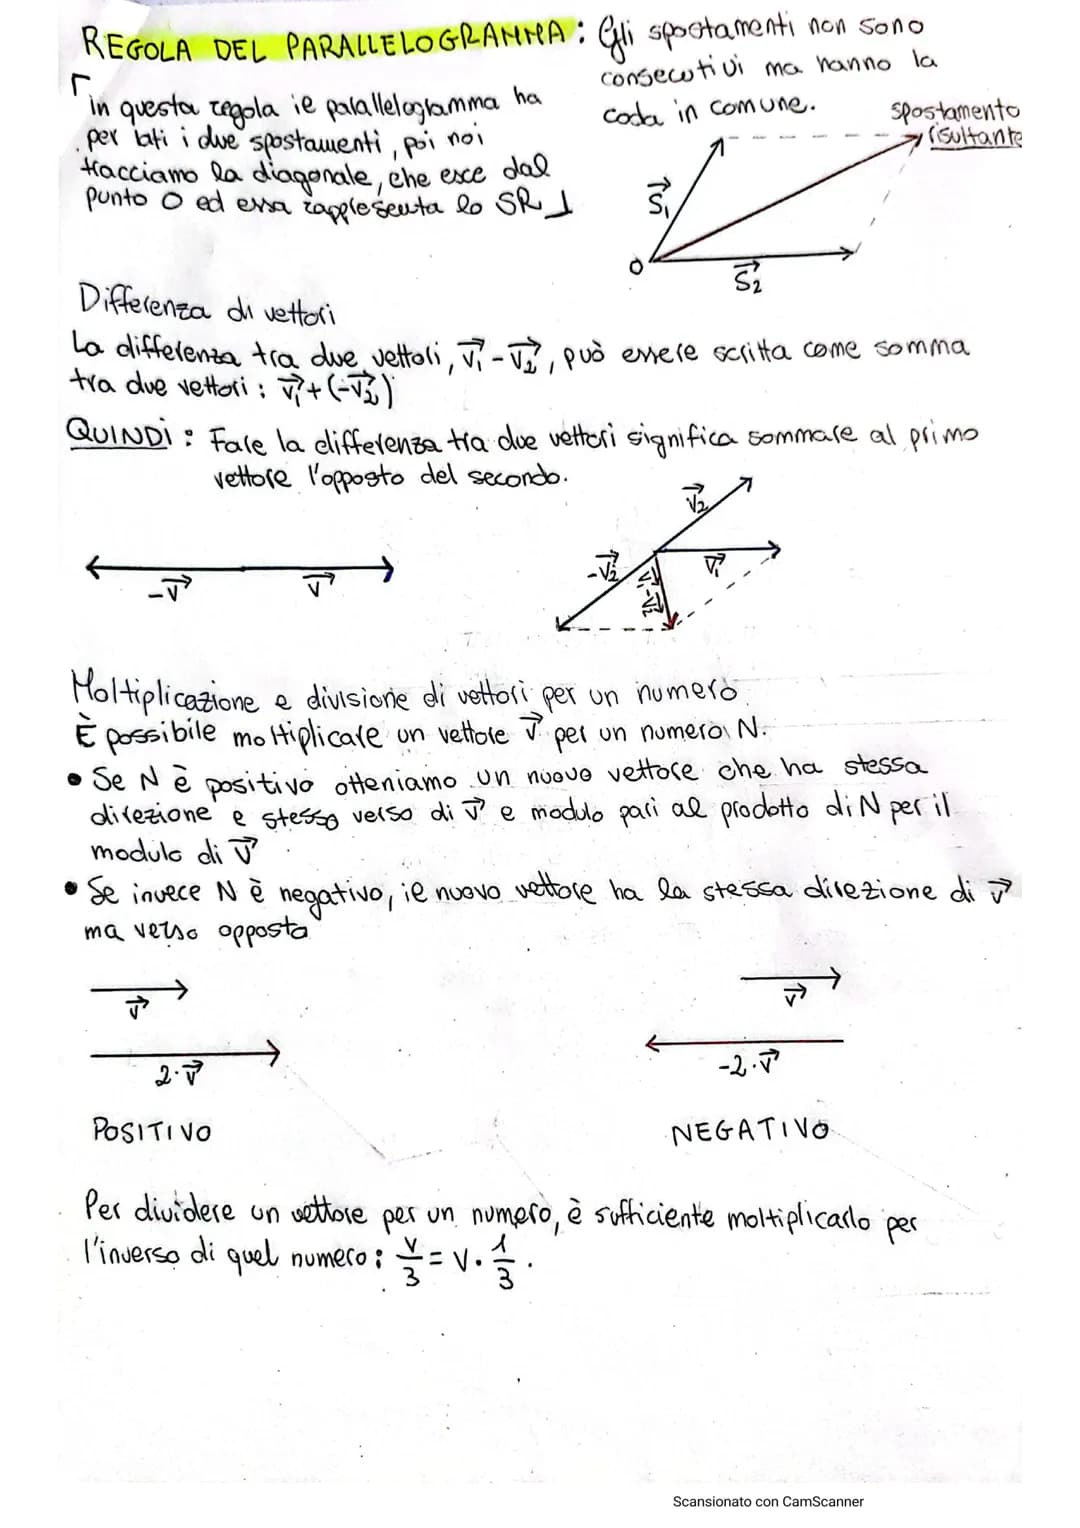 REGOLA DEL PARALLELOGRAMMA: Gli spostamenti non sono
consecutivi ma hanno la
coda in comune.
in questa regola il parallelogramma ha
per lati i due spostamenti, poi noi
tracciamo la diagonale, che esce dal
punto O ed essa rappresenta lo SR
spostamento
risultante
S⃗₁
O
S⃗₂
Differenza di vettori
La differenza tra due vettori, v⃗₁ - v⃗₂, può essere scritta come somma
tra due vettori: v⃗₁ + (-v⃗₂)
QUINDI: Fare la differenza tra due vettori significa sommare al primo
vettore l'opposto del secondo.
-v⃗ v⃗
v⃗₂
-v⃗₂ v⃗₁
v⃗₁-v⃗₂
Moltiplicazione e divisione di vettori per un numero
È possibile moltiplicare un vettore v⃗ per un numero N.
• Se N è positivo otteniamo un nuovo vettore che ha stessa
direzione e stesso verso di v⃗ e modulo pari al prodotto di N per il
modulo di v⃗
• Se invece N è negativo, il nuovo vettore ha la stessa direzione di v⃗
ma verso opposto
v⃗ v⃗
2·v⃗ -2·v⃗
POSITIVO NEGATIVO
Per dividere un vettore per un numero, è sufficiente moltiplicarlo per
l'inverso di quel numero: v/3 = v · 1/3.
Scansionato con CamScanner